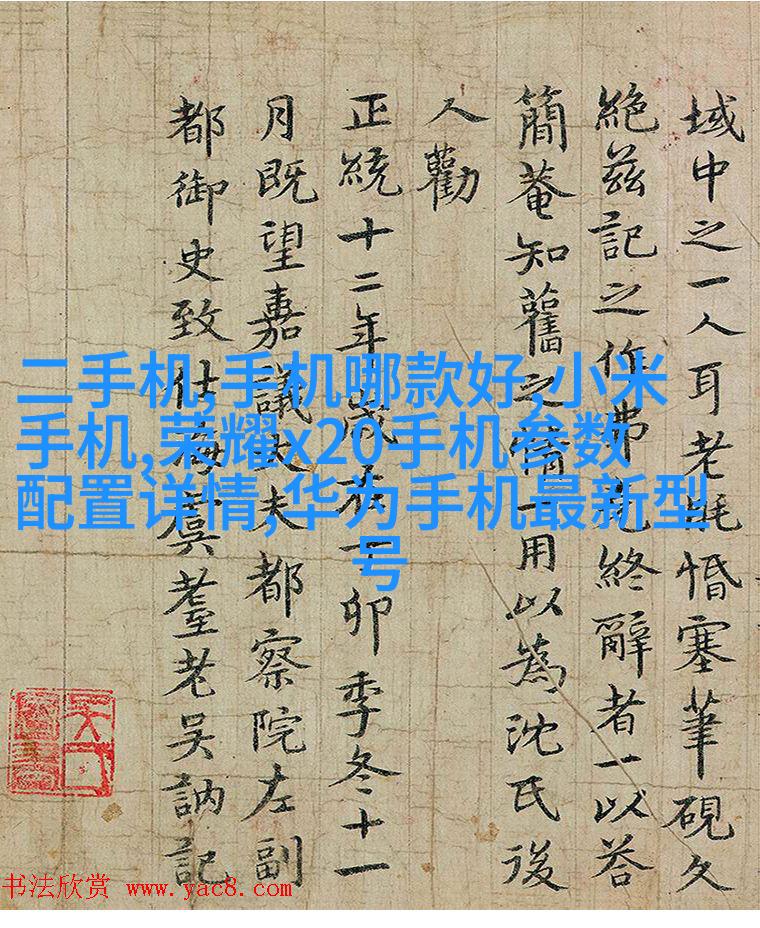 域中之一人耳老惛塞筆硯久
絶兹記之作弗克終辭者一以荅
簡菴知舊之情一用以為沈氏後
人勸
正統十二年歲在丁卯季冬十一
月既望嘉議大夫都察院左副
都御史致仕海虞耋老吳訥記
二手机,手机哪款好,小米
手机,荣耀x20手机参数
配置详情,华为手机最新型
号
书法欣赏 www.yac8.com